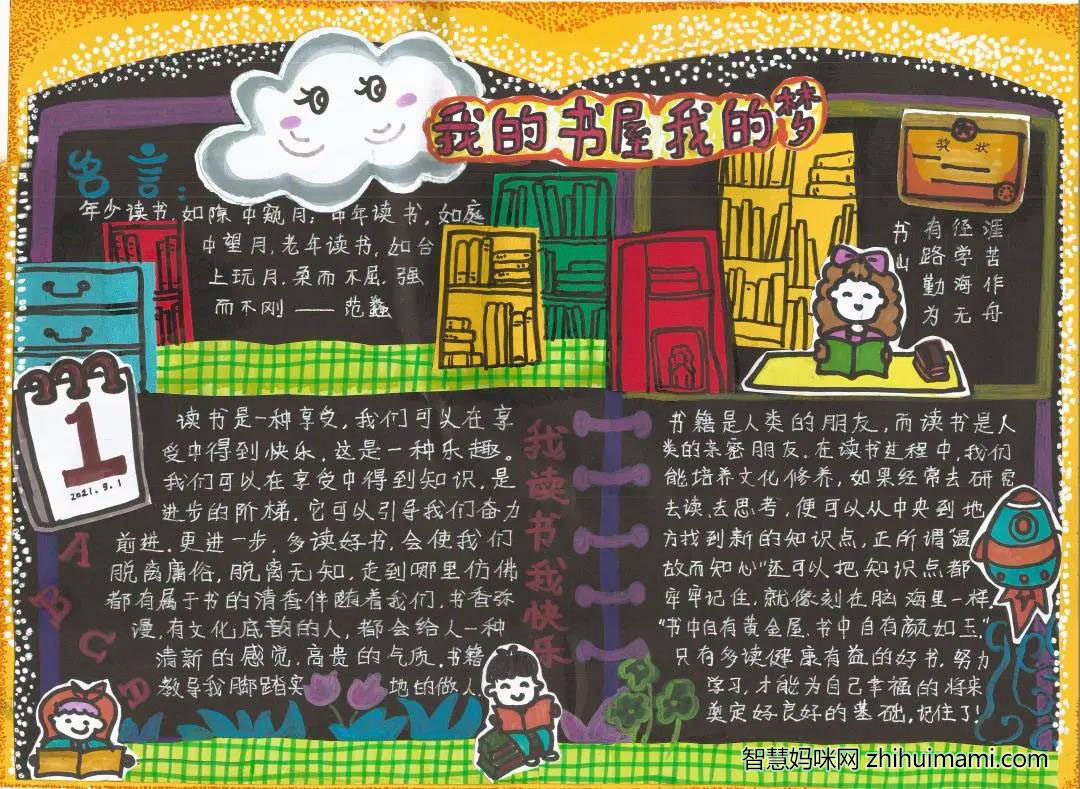 我的书屋我的梦
名言：
年少读书，如隙中窥月；中年读书，如庭
中望月，老年读书，如台
上玩月，柔而不屈，强
而不刚——范蠡
奖状
书山
有路勤为
径学海无
涯苦作舟
1
2021.9.1
A
B
C
D
读书是一种享受，我们可以在享
受中得到快乐，这是一种乐趣。
我们可以在享受中得到知识，是
进步的阶梯，它可以引导我们奋力
前进，更进一步，多读好书，会使我们
脱离庸俗，脱离无知，走到哪里仿佛
都有属于书的清香伴随着我们，书香弥
漫，有文化底蕴的人，都会给人一种
清新的感觉，高贵的气质，书籍
教导我脚踏实地的做人。
我读书我快乐
书籍是人类的朋友，而读书是人
类的亲密朋友，在读书进程中，我们
能培养文化修养，如果经常去研究
去读、去思考，便可以从中央到地
方找到新的知识点，正所谓温
故而知心”还可以把知识点都
牢牢记住，就像刻在脑海里一样。
“书中自有黄金屋，书中自有颜如玉。”
只有多读健康有益的好书，努力
学习，才能为自己幸福的将来
奠定好良好的基础，记住了！
智慧妈咪网 zhihuimami.com